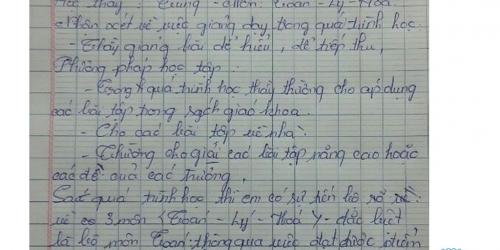 Học thầy : Trung - môn: Toán - Lý - Hoá
* Nhận xét về việc giảng dạy trong quá trình học.
- Thầy giảng bài dễ hiểu, dễ tiếp thu,
Phương pháp học tập :
- Trong quá trình học thầy thường cho áp dụng
các bài tập trong sách giáo khoa.
- Cho các bài tập về nhà.
- Thường cho giải các bài tập nâng cao hoặc
các đề của các trường.
Sau quá trình học thì em có sự tiến bộ rõ rệt
về cả 3 môn (Toán - Lý - Hoá) - đặc biệt
là bộ môn Toán thông qua việc đạt được điểm